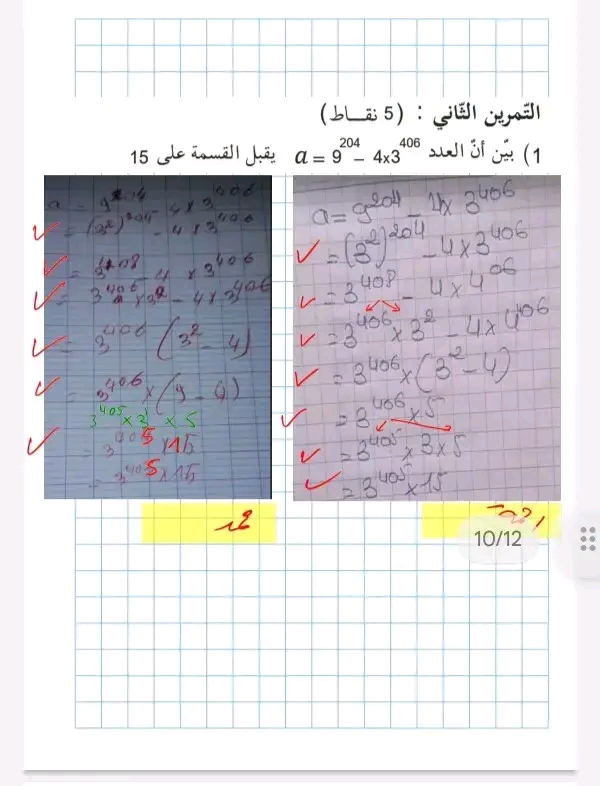 التّمرين الثّاني : (5 نقـــاط)
1) بيّن أنّ العدد a = 9^204 – 4x3^406 يقبل القسمة على 15
a = 9^204 - 4 x 3^406
= (3^2)^204 - 4 x 3^406
= 3^408 - 4 x 4^06
= 3^406 x 3^2 - 4 x 4^06
= 3^406 x (3^2 - 4)
= 3^406 x 5
= 3^405 x 3 x 5
= 3^405 x 15
a = 9^204 - 4 x 3^406
= (3^2)^204 - 4 x 3^406
= 3^408 - 4 x 3^406
= 3^406 x 3^2 - 4 x 3^406
= 3^406 (3^2 - 4)
= 3^406 x (9 - 4)
3^405 x 3 x 5
= 3^405 x 15
= 3^405 x 15
10/12